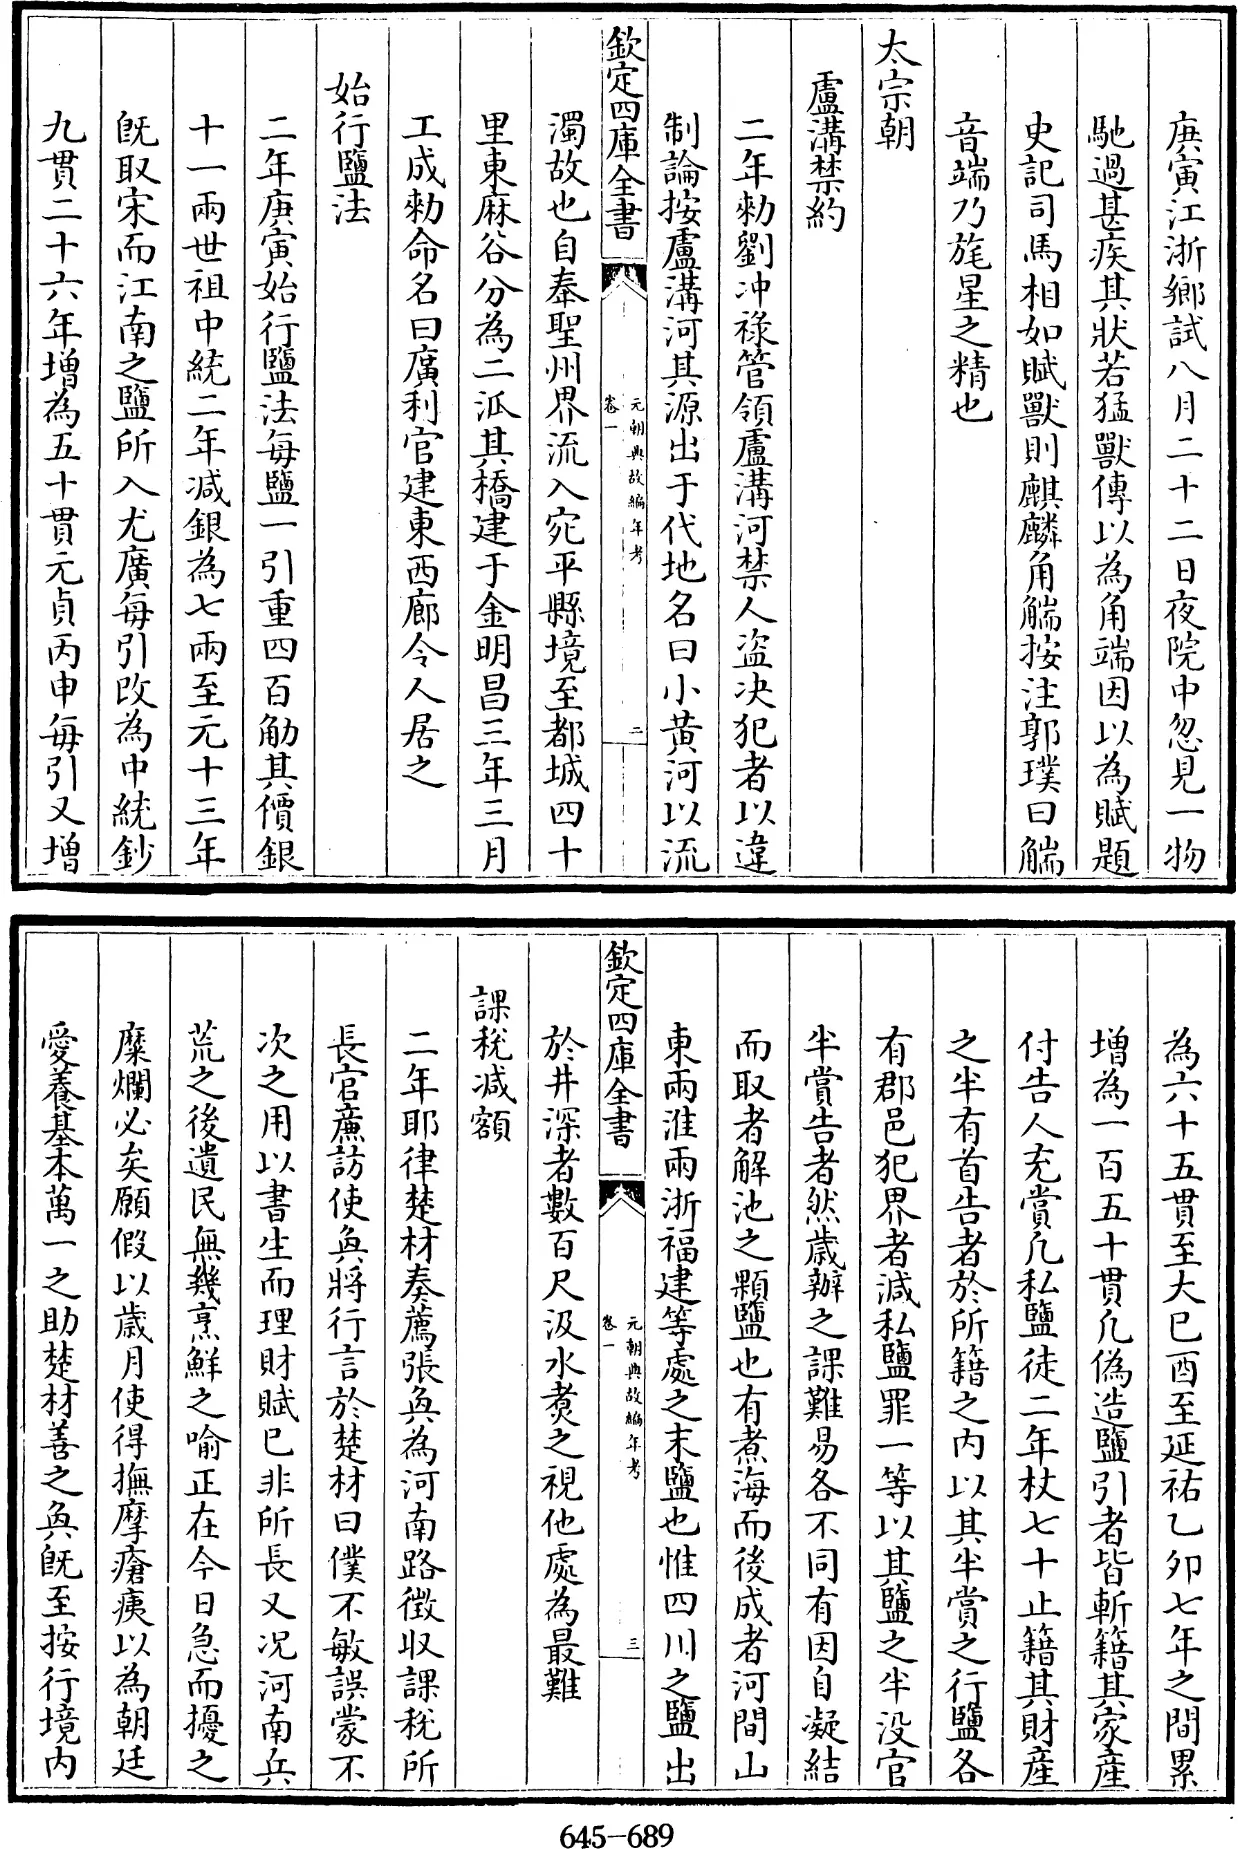 庚寅江浙鄉試八月二十二日夜院中忽見一物
馳過甚疾其狀若猛獸傳以為角端因以為賦題
史記司馬相如賦獸則麒麟角觿按注郭璞曰觿
音端乃旄星之精也
太宗朝
盧溝禁約
二年勅劉冲祿管領盧溝河禁人盜决犯者以違
制論按盧溝河其源出于代地名曰小黄河以流
欽定四庫全書
元朝典故編年考
卷一
二
濁故也自奉聖州界流入宛平縣境至都城四十
里東麻谷分為二派其橋建于金明昌三年三月
工成勅命名曰廣利官建東西廊令人居之
始行鹽法
二年庚寅始行鹽法每鹽一引重四百觔其價銀
十一兩世祖中統二年减銀為七兩至元十三年
旣取宋而江南之鹽所入尤廣每引改為中統鈔
九貫二十六年增為五十貫元貞丙申每引又增
為六十五貫至大己酉至延祐乙卯七年之間累
增為一百五十貫凡偽造鹽引者皆斬籍其家產
付告人充賞凡私鹽徒二年杖七十止籍其財產
之半有首告者於所籍之內以其半賞之行鹽各
有郡邑犯界者減私鹽罪一等以其鹽之半没官
半賞告者然歲辦之課難易各不同有因自凝結
而取者解池之顆鹽也有煮海而後成者河間山
東兩淮兩浙福建等處之末鹽也惟四川之鹽出
欽定四庫全書
元朝典故編年考
卷一
三
於井深者數百尺汲水煮之視他處為最難
課稅减額
二年耶律楚材奏薦張㒷為河南路徵収課稅所
長官廉訪使㒷將行言於楚材曰僕不敏誤蒙不
次之用以書生而理財賦已非所長又况河南兵
荒之後遺民無幾烹鮮之喻正在今日急而擾之
糜爛必矣願假以歲月使得撫摩瘡痍以為朝廷
愛養基本萬一之助楚材善之㒷旣至按行境內
645-689